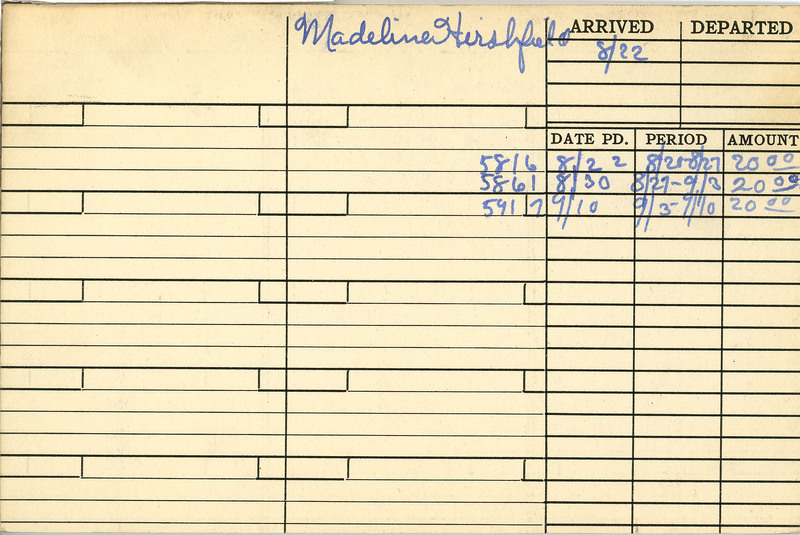 Madeline Hirshfield ARRIVED DEPARTED
8/22
DATE PD. PERIOD AMOUNT
5816 8/22 8/21-8/27 20 00
5861 8/30 8/27-9/3 20 00
5917 9/10 9/3-9/10 20 00